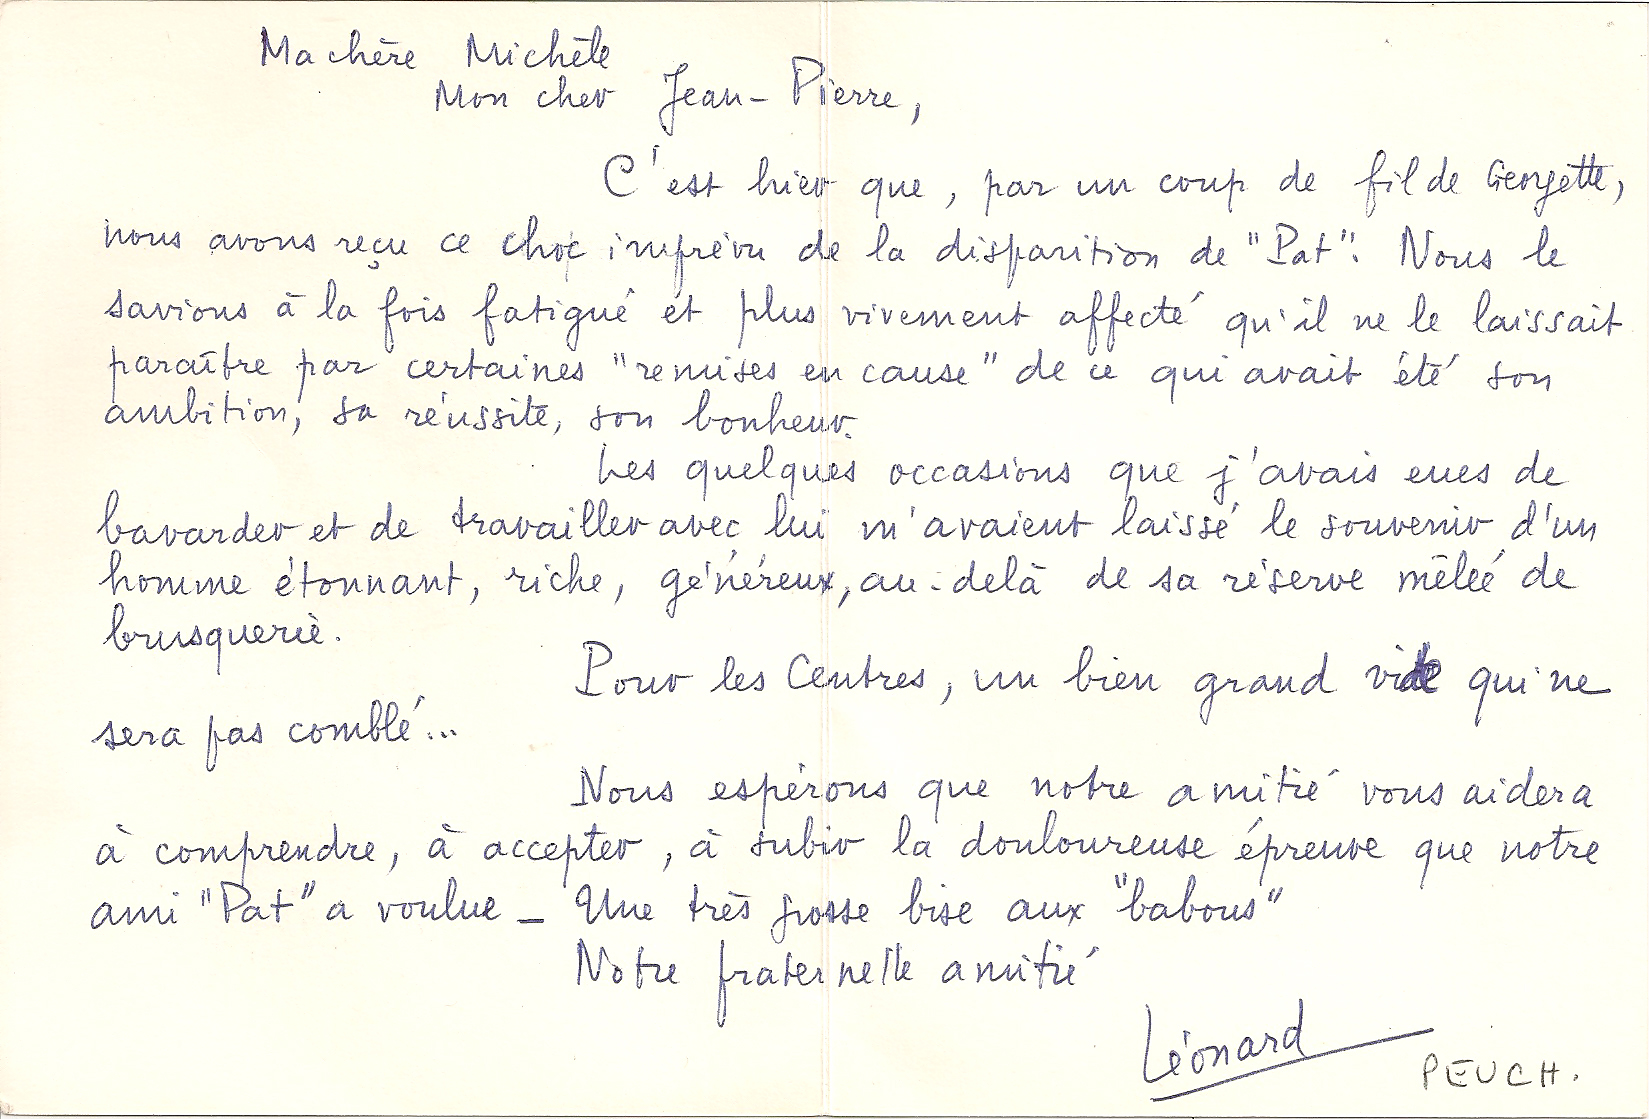 Ma chère Michèle
Mon cher Jean-Pierre,
C'est hier que, par un coup de fil de Georgette,
nous avons reçu ce choc imprévu de la disparition de "Pat". Nous le
savions à la fois fatigué et plus vivement affecté qu'il ne le laissait
paraître par certaines "remises en cause" de ce qui avait été son
ambition, sa réussite, son bonheur.
Les quelques occasions que j'avais eues de
bavarder et de travailler avec lui m'avaient laissé le souvenir d'un
homme étonnant, riche, généreux, au-delà de sa réserve mêlée de
brusquerie.
Pour les Centres, un bien grand vide qui ne
sera pas comblé...
Nous espérons que notre amitié vous aidera
à comprendre, à accepter, à subir la douloureuse épreuve que notre
ami "Pat" a voulue _ Une très grosse bise aux "babous"
Notre fraternelle amitié
Léonard
PEUCH.